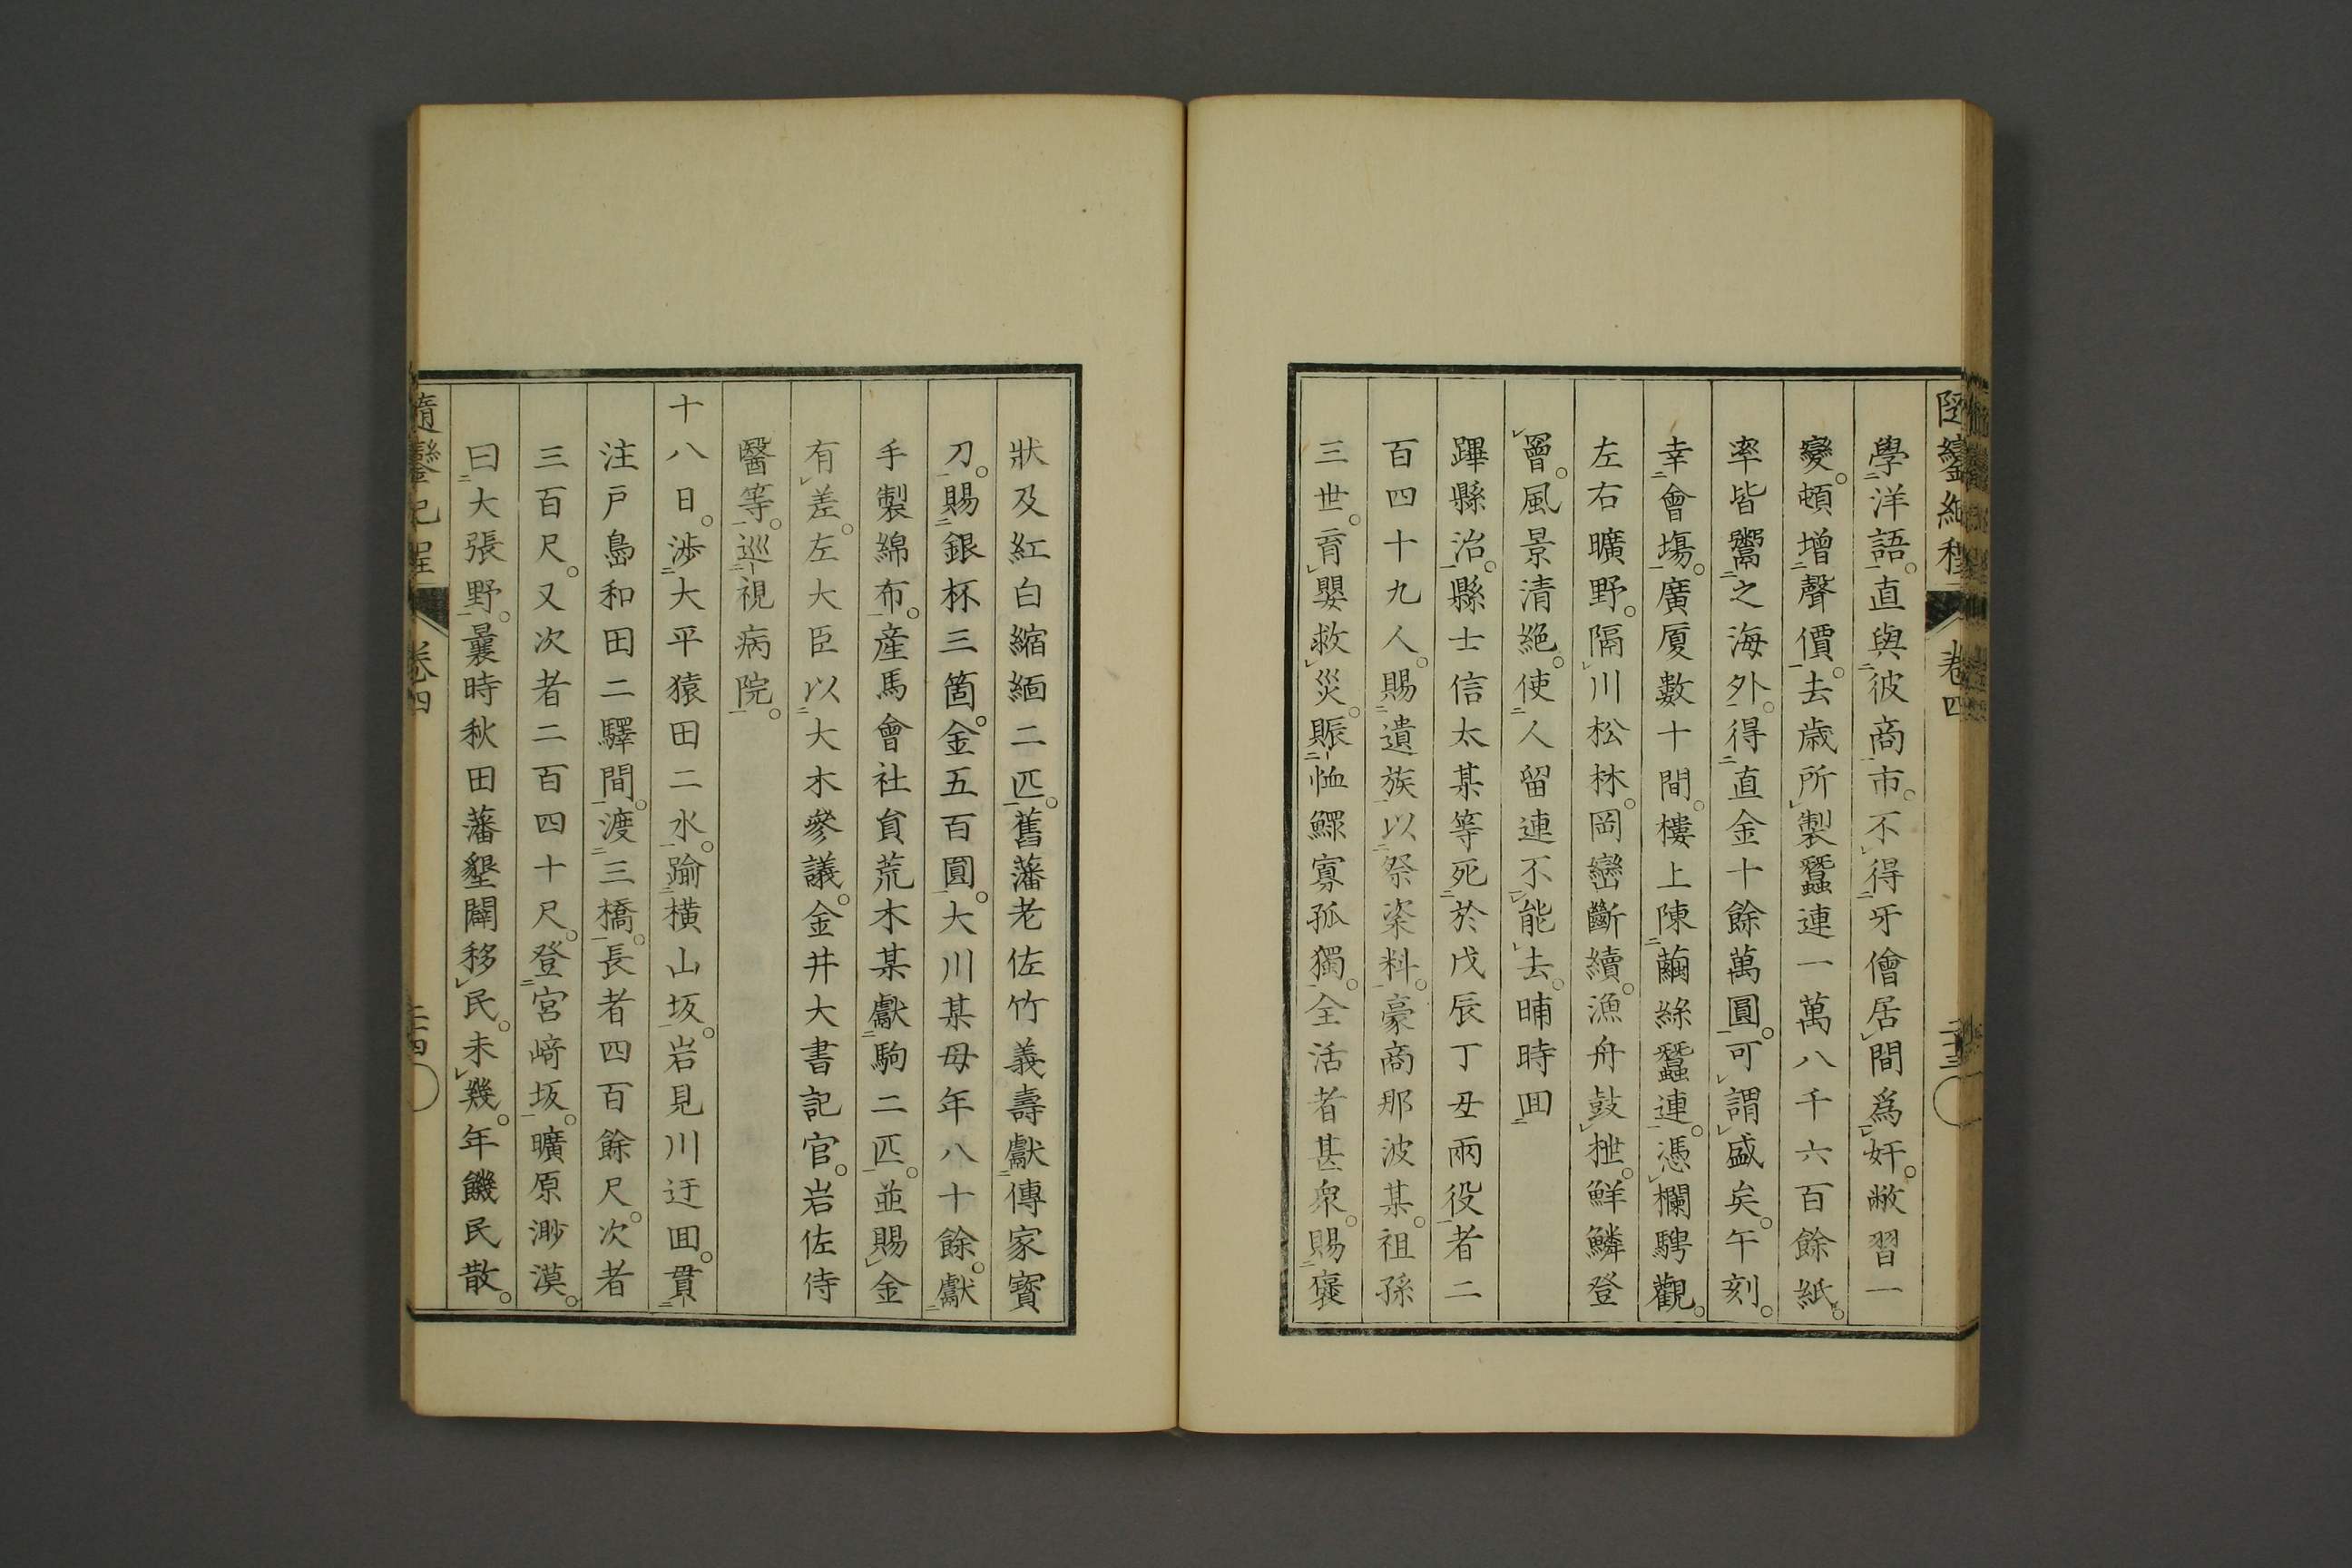 隨鑾紀程 卷四 二十三
學洋語。直與彼商市。不得牙儈居間爲奸。敝習一
變。頓增聲價。去歲所製蠶連一萬八千六百餘紙。
率皆鬻之海外。得直金十餘萬圓。可謂盛矣。午刻。
幸會場。廣厦數十間。樓上陳繭絲蠶連。憑欄騁觀。
左右曠野。隔川松林。岡巒斷續。漁舟鼓枻。鮮鱗登
罾。風景清絶。使人留連不能去。晡時囬
蹕縣治。縣士信太某等死於戊辰丁丑兩役者二
百四十九人。賜遺族以祭粢料。豪商那波某。祖孫
三世。育嬰救災。賑恤鰥寡孤獨。全活者甚衆。賜褒
狀及紅白縮緬二匹。舊藩老佐竹義壽獻傳家寳
刀。賜銀杯三箇。金五百圓。大川某母年八十餘。獻
手製綿布。産馬會社員荒木某獻駒二匹。並賜金
有差。左大臣以大木參議。金井大書記官。岩佐侍
醫等。巡視病院。
十八日。渉大平猿田二水。踰橫山坂。岩見川迂囬。貫
注戸島和田二驛間。渡三橋。長者四百餘尺。次者
三百尺。又次者二百四十尺。登宮﨑坂。曠原渺漠。
曰大張野。曩時秋田藩墾闢移民。未幾。年饑民散。
隨鑾紀程 卷四 二十四